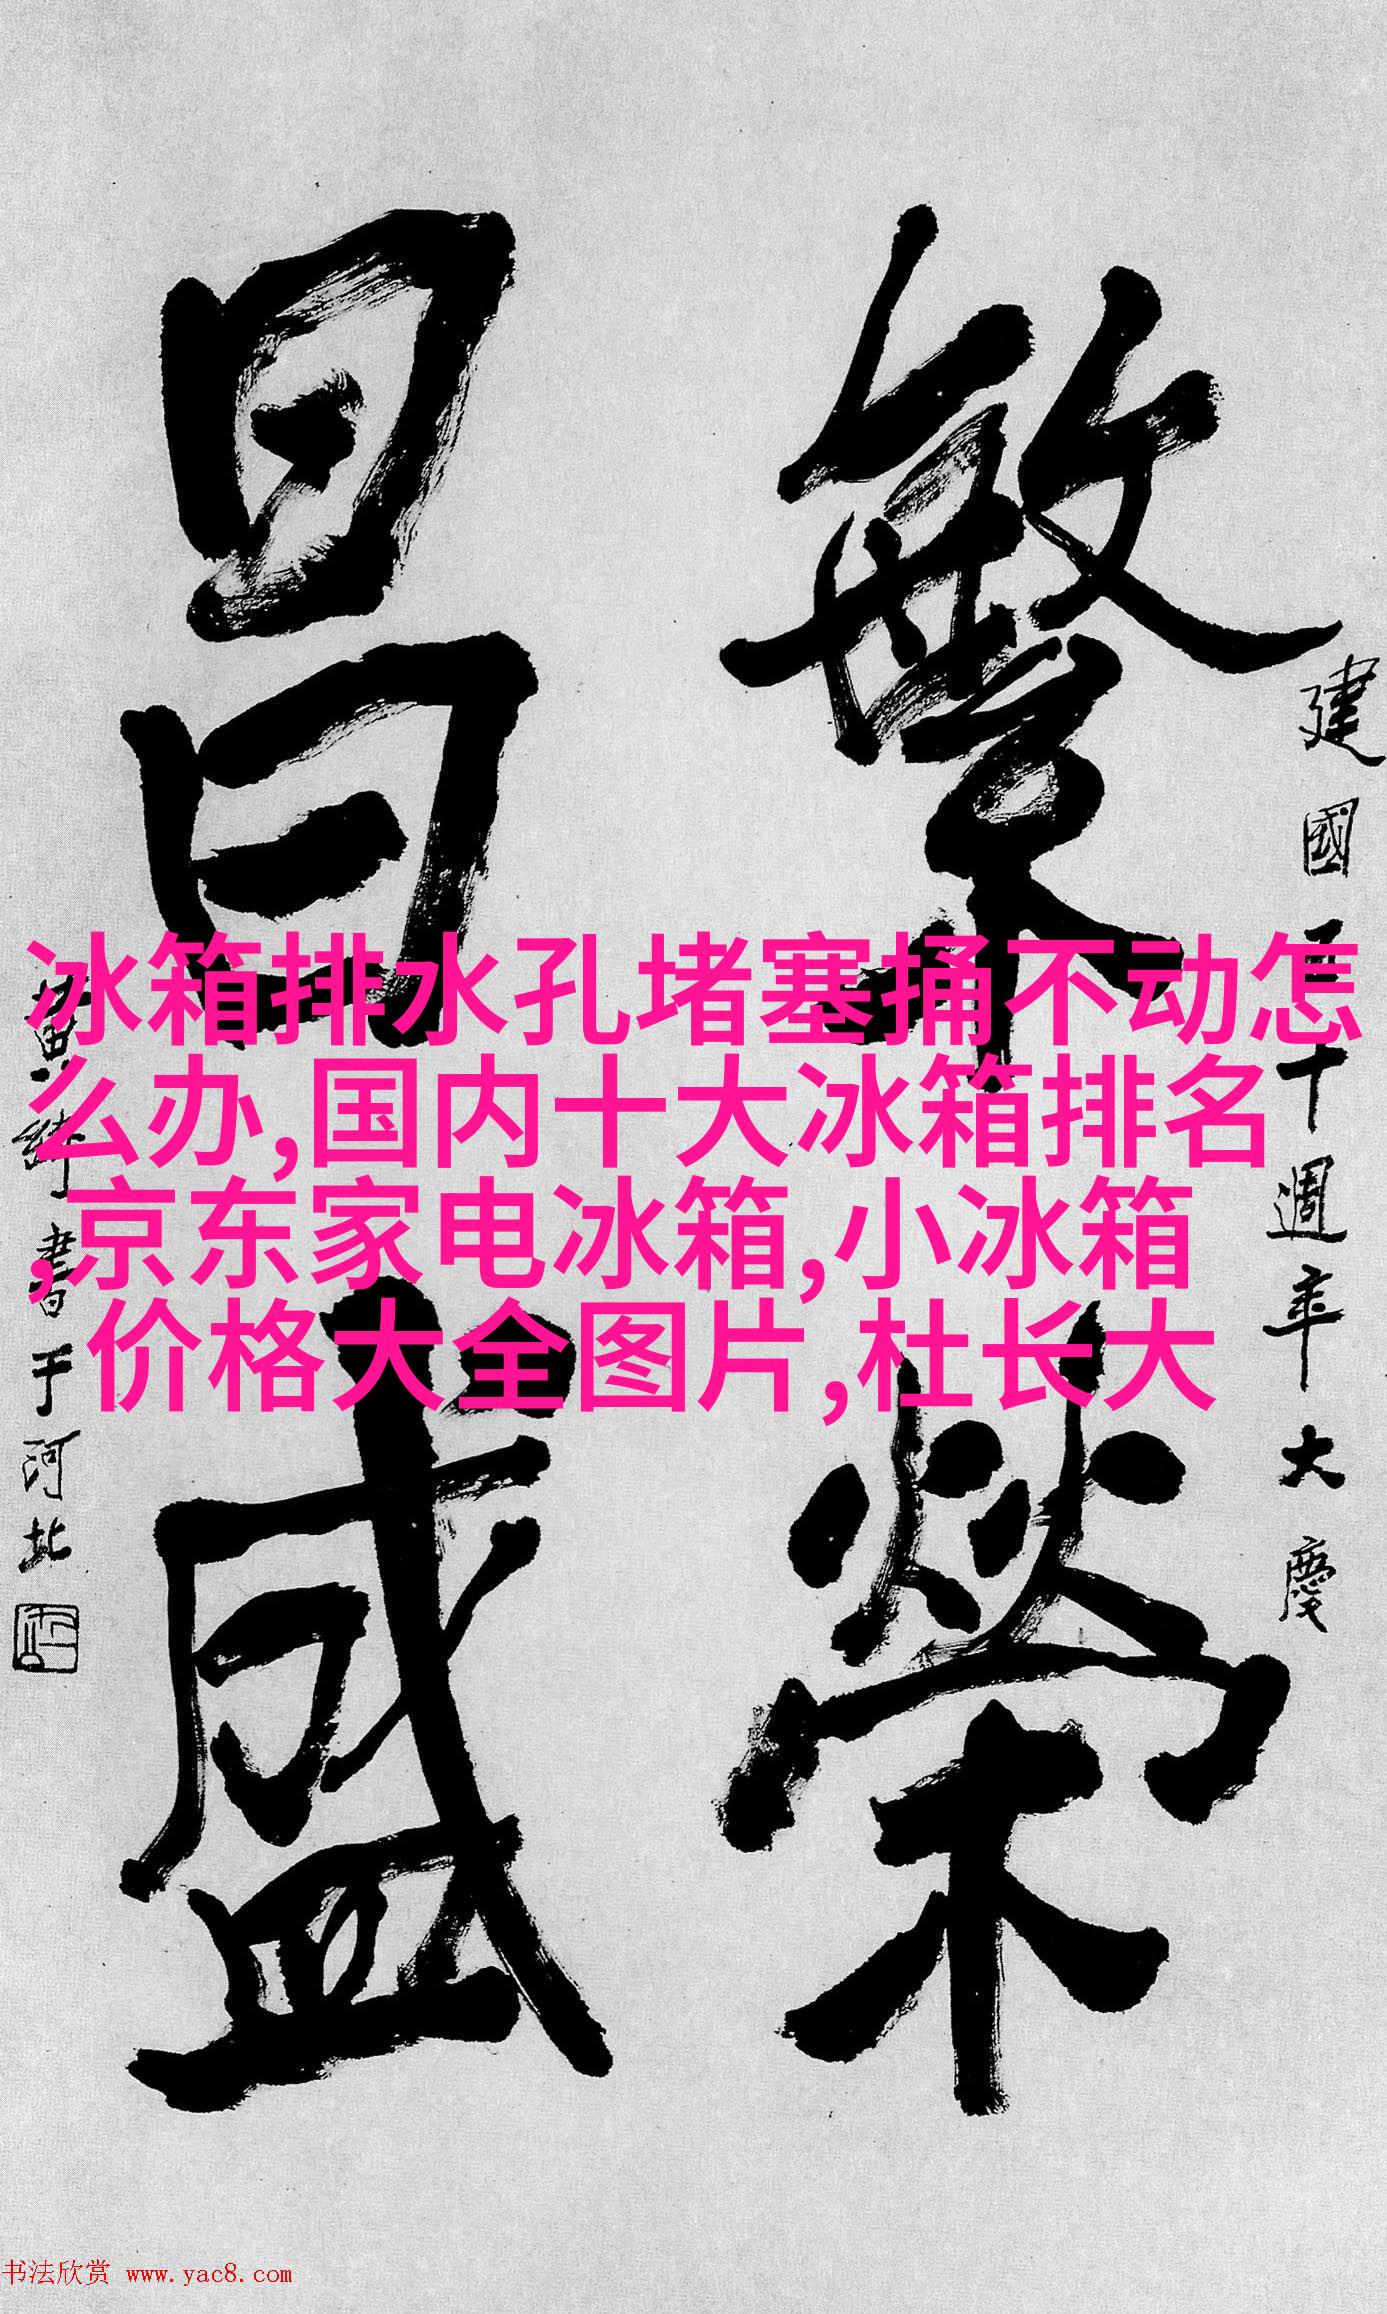 建國五十週年大慶
繁榮
昌盛
黄绮書于河北
冰箱排水孔堵塞捅不动怎
么办,国内十大冰箱排名
,京东家电冰箱,小冰箱
价格大全图片,杜长大
书法欣赏 www.yac8.com